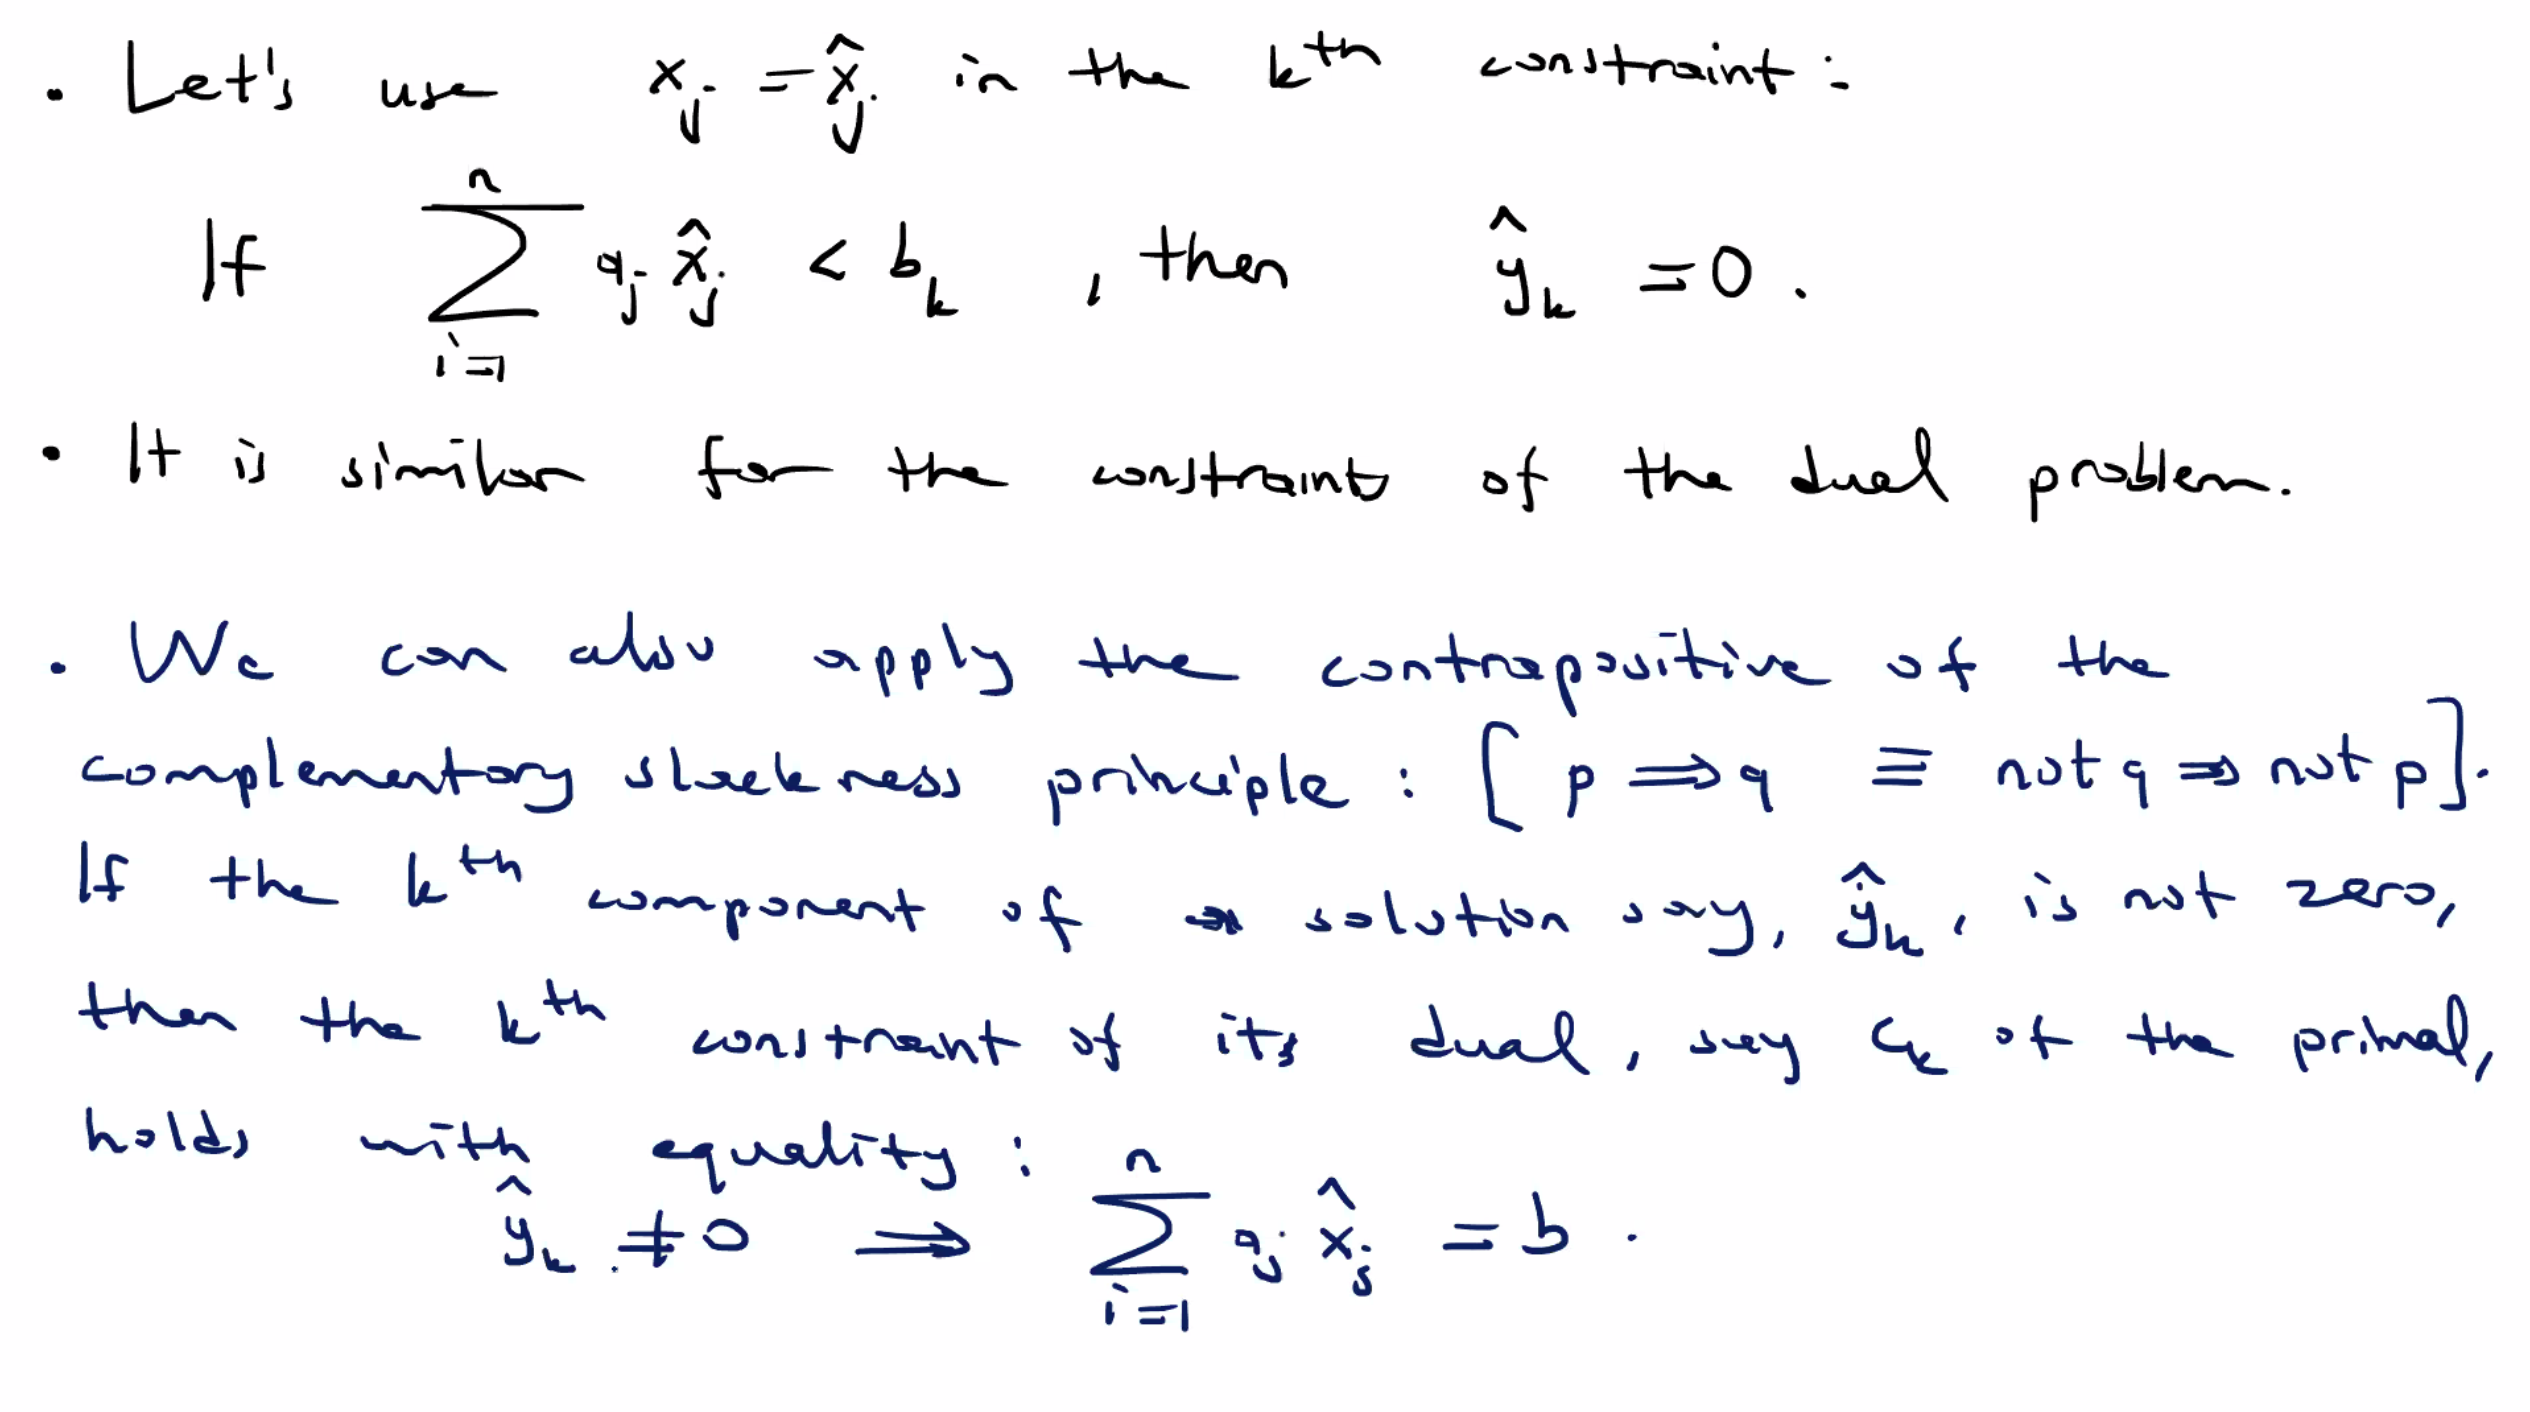 • Let's use x_j = x̂_j in the k^th constraint:
If ∑_{i=1}^{n} a_j x̂_j < b_k , then ŷ_k = 0 .
• It is similar for the constraints of the dual problem.
• We can also apply the contrapositive of the
complementary slackness principle : [ p ⟹ q ≡ not q ⟹ not p ].
If the k^th component of a solution say, ŷ_k, is not zero,
then the k^th constraint of its dual, say C_k of the primal,
holds with equality :
ŷ_k ≠ 0 ⟹ ∑_{i=1}^{n} a_j x̂_j = b .